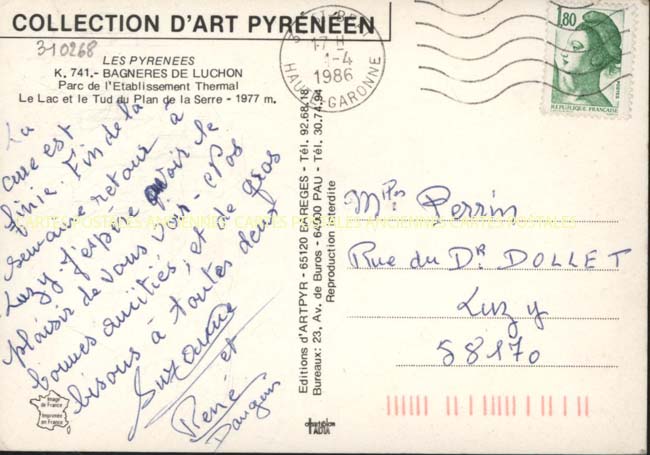 COLLECTION D'ART PYRÉNÉEN
310268
LES PYRENEES
K. 741.- BAGNERES DE LUCHON
Parc de l'Etablissement Thermal
Le Lac et le Tud du Plan de la Serre - 1977 m.
La
cure est
finie. Fin de la
semaine retour à
Luzy. J'espère avoir le
plaisir de vous voir. Nos
bonnes amitiés, et de gros
bisous à toutes deux
Suzanne
et
René
Image
de France
Imprimée
en France
Editions d'ARTPYR - 65120 BAREGES - Tél. 92.68.18
Bureaux: 23, Av. de Buros - 64000 PAU - Tél. 30.74.94
Reproduction interdite
17 H
1-4
1986
HAUTE-GARONNE
1,80
REPUBLIQUE FRANÇAISE
POSTES
Mmes Perrin
Rue du DR DOLLET
Luzy
58170
CARTES POSTALES ANCIENNES CARTES POSTALES ANCIENNES CARTES POSTALES